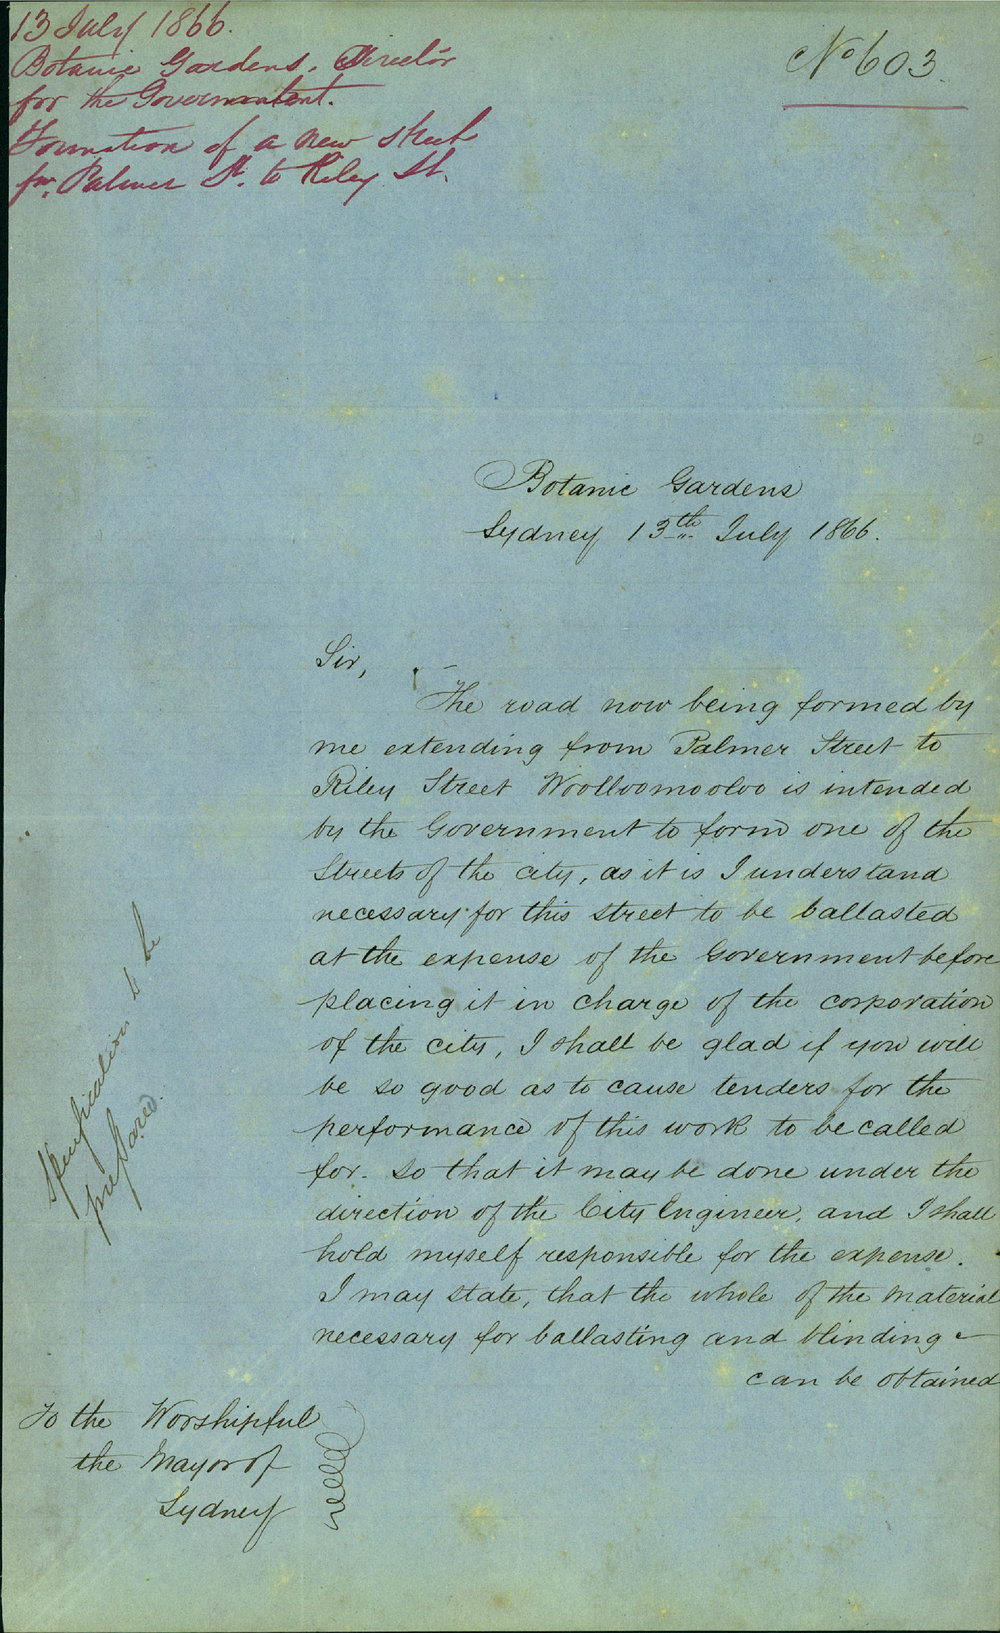 13 July 1866.
Botanic Gardens, Director
for the Government.
Formation of a new street
fm. Palmer St. to Riley St.
No 603.
Botanic Gardens
Sydney 13th July 1866.
Sir,
The road now being formed by
me extending from Palmer Street to
Riley Street Woolloomooloo is intended
by the Government to form one of the
Streets of the city, as it is I understand
necessary for this street to be ballasted
at the expense of the Government before
placing it in charge of the corporation
of the city, I shall be glad if you will
be so good as to cause tenders for the
performance of this work to be called
for. so that it may be done under the
direction of the City Engineer, and I shall
hold myself responsible for the expense.
I may state, that the whole of the material
necessary for ballasting and blinding
can be obtained
To the Worshipful
the Mayor of
Sydney
Specification to be
prepared.